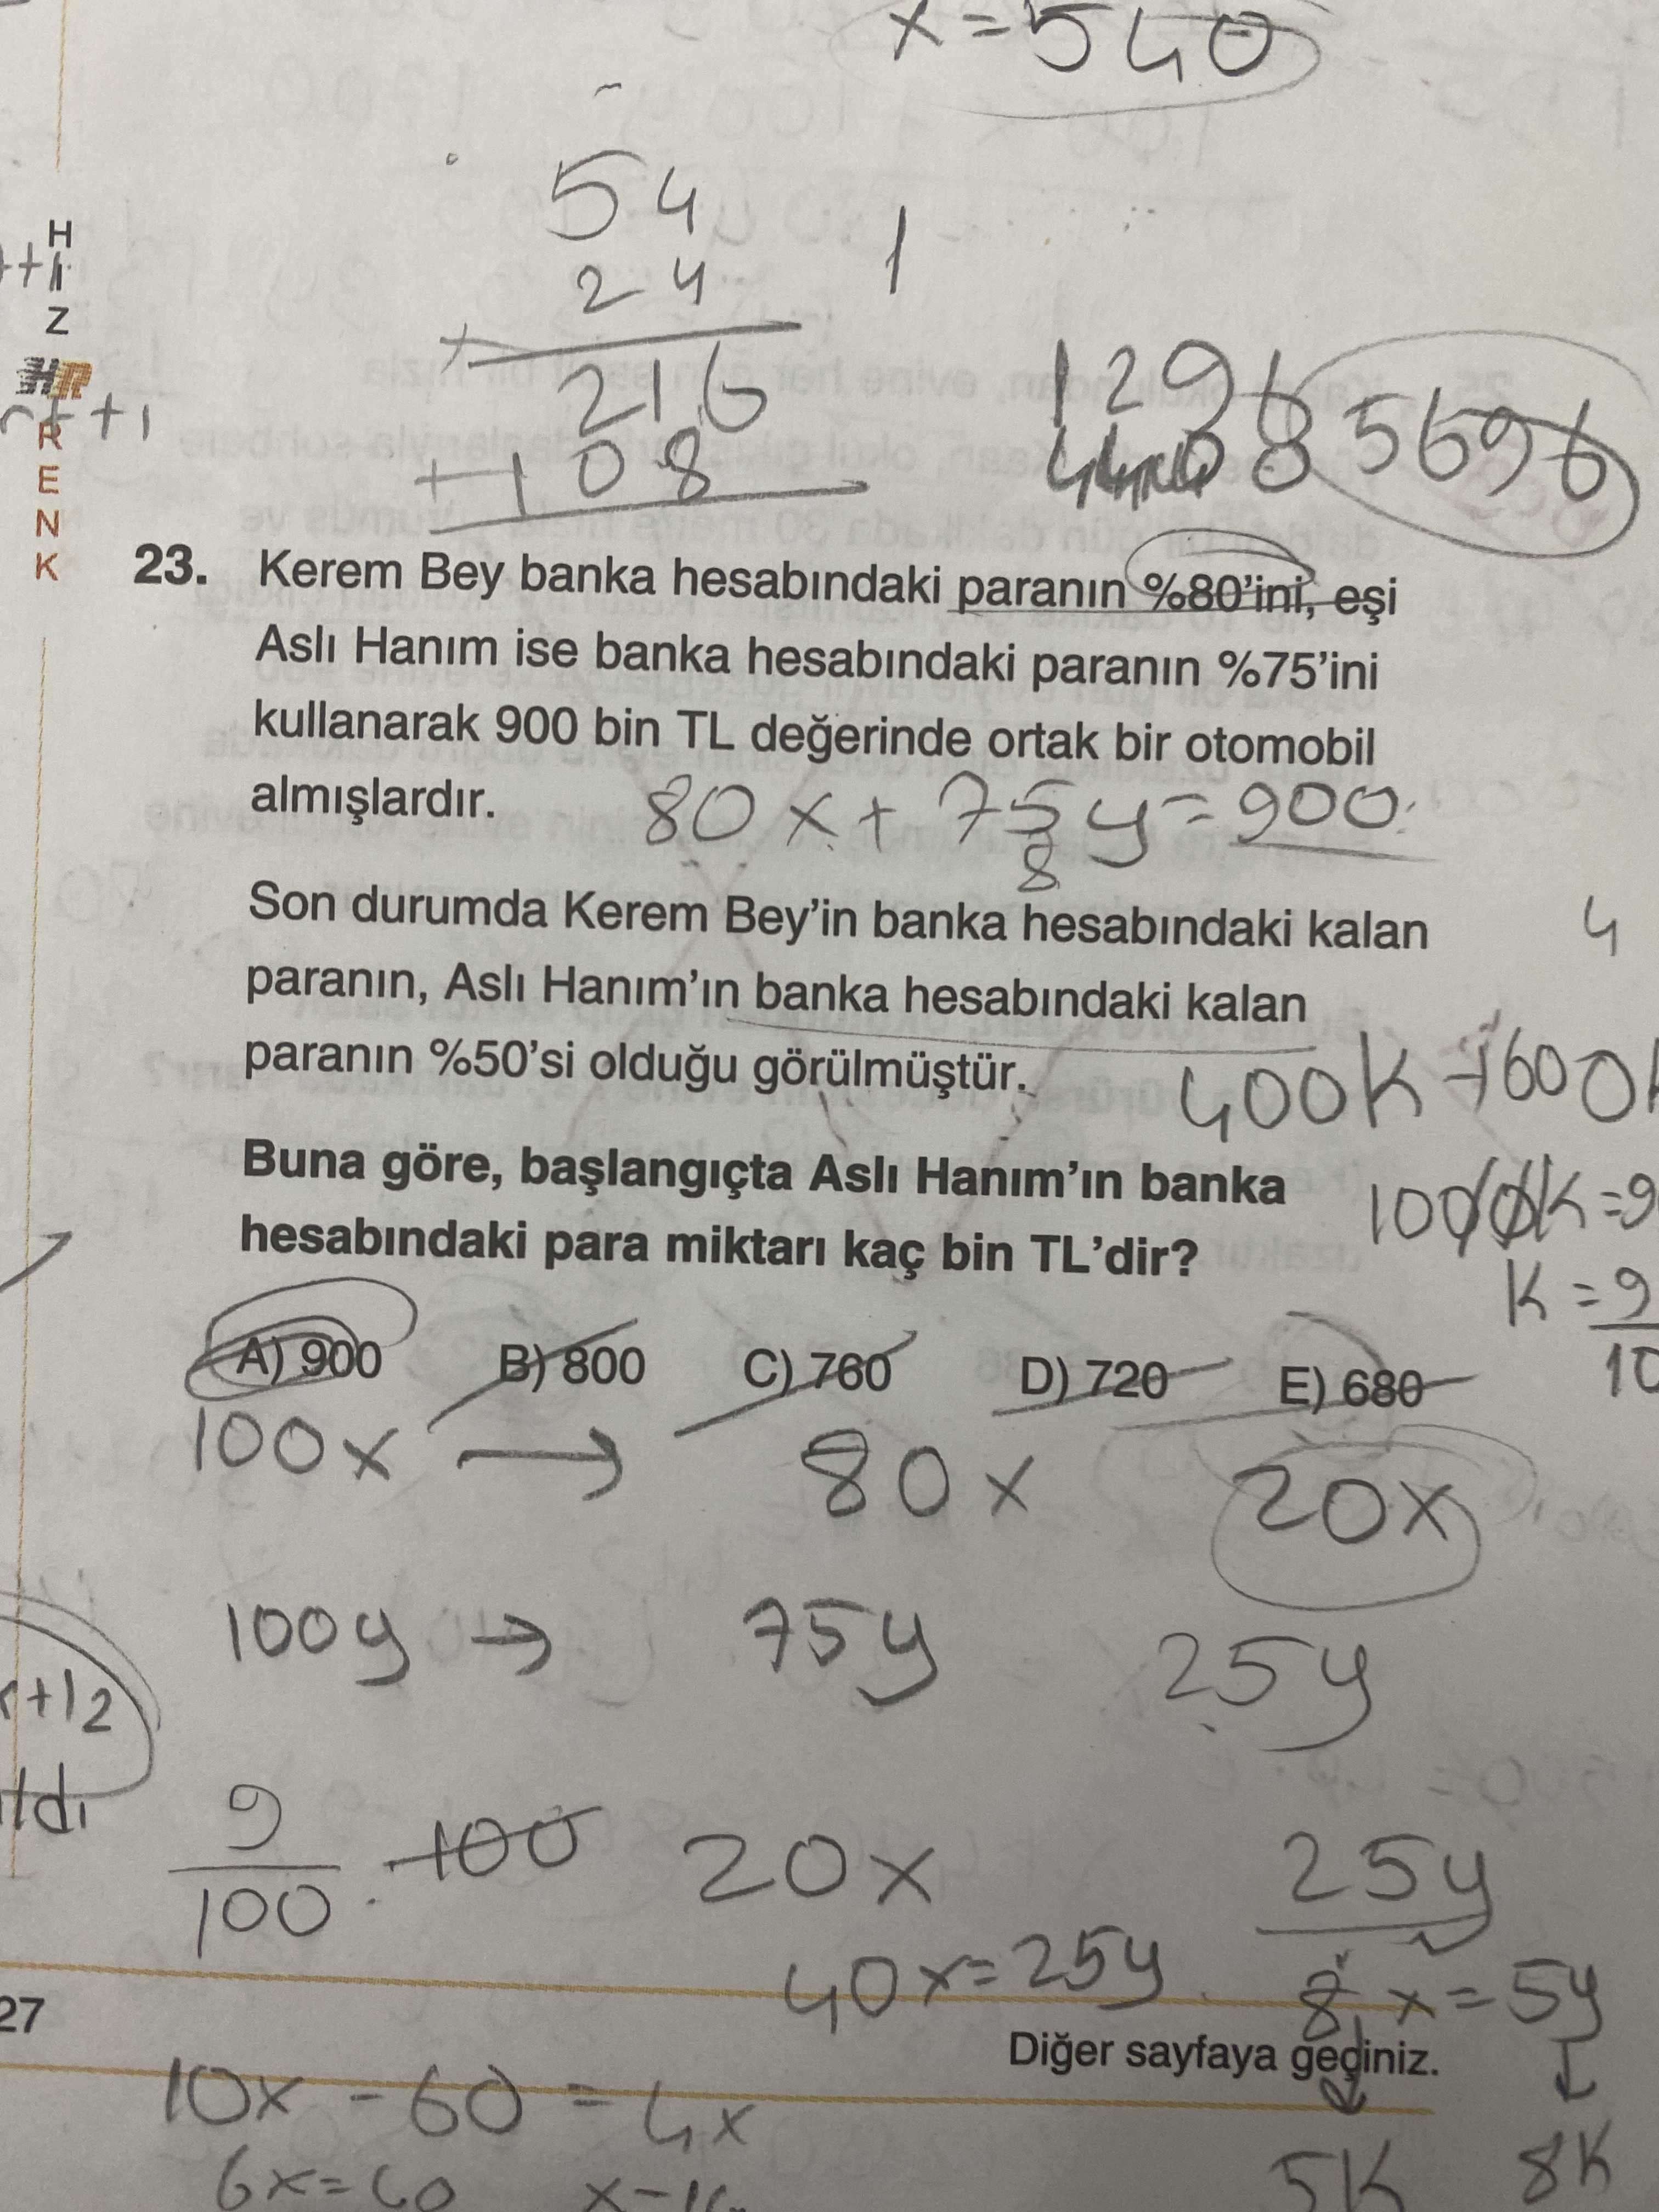 x = 540
54
24
x
216
+108
1
1296
5696
H
I
Z
HR
R
E
N
K
23. Kerem Bey banka hesabındaki paranın %80'ini, eşi
Aslı Hanım ise banka hesabındaki paranın %75'ini
kullanarak 900 bin TL değerinde ortak bir otomobil
almışlardır.
80x + 75y = 900
8
Son durumda Kerem Bey'in banka hesabındaki kalan
paranın, Aslı Hanım'ın banka hesabındaki kalan
paranın %50'si olduğu görülmüştür.
4
400K + 600K
Buna göre, başlangıçta Aslı Hanım'ın banka
hesabındaki para miktarı kaç bin TL'dir?
1000K = 9
K = 9
10
A) 900 B) 800 C) 760 D) 720 E) 680
100x → 80x 20x
100y → 75y 25y
+12
ldı
9
100 . 100
20x 25y
40x = 25y 8x = 5y
27
Diğer sayfaya geçiniz.
5K 8K
10x - 60 = 4x
6x = 60